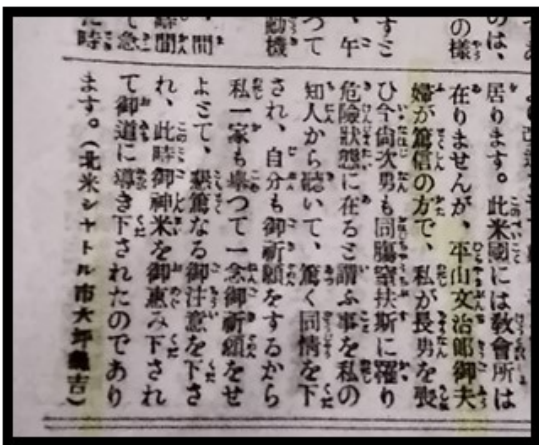 のは、
の樣
すと
、午
つて
動機
、間
時間
て急
た時
居ります。此米國には敎會所は
在りませんが、平山文治郎御夫
婦が篤信の方で、私が長男を喪
ひ今尙次男も同膓窒扶斯に罹り
危險狀態に在ると謂ふ事を私の
知人から聽いて、篤く同情を下
され、自分も御祈願をするから
私一家も擧つて一念御祈願をせ
よとて、懇篤なる御注意を下さ
れ、此時御神米を御惠み下され
て御道に導き下されたのであり
ます。(北米シャトル市大坪龜吉)